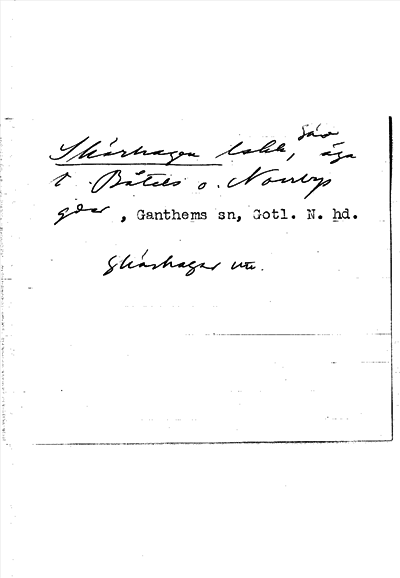 Skårhagen lokk,
t Båtels o. Norrbys
gdar, Ganthems sn, Gotl. N. hd.
Skårhagar uu.